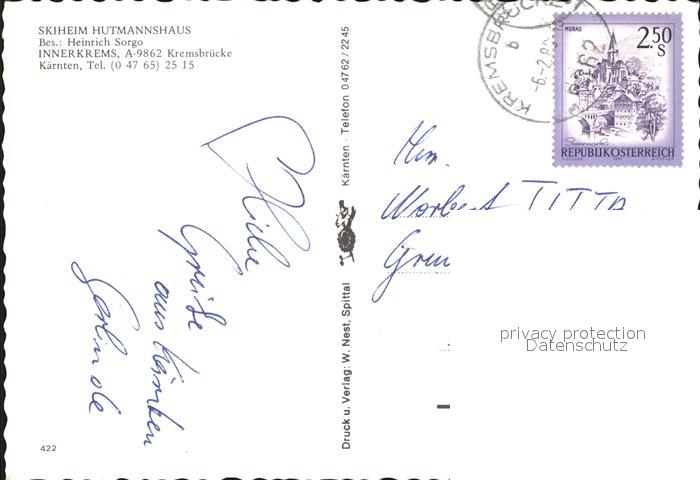 SKIHEIM HUTMANNSHAUS
Bes.: Heinrich Sorgo
INNERKREMS, A-9862 Kremsbrücke
Kärnten, Tel. (0 47 65) 25 15
Grüße
aus Kärnten
Gerlinde
422
Druck u. Verlag: W. Nest, Spittal
Kärnten · Telefon 0 47 62 / 22 45
KREMSBRÜCKE
b
9862
MURAU
2.50
S
REPUBLIK ÖSTERREICH
Hrn.
Norbert TITTA
privacy protection
Datenschutz